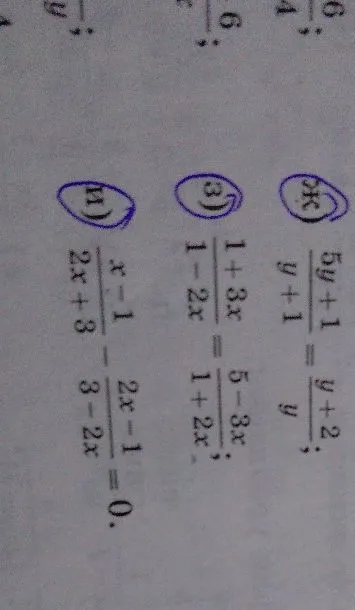 6/4;
ж) (5y + 1)/(y + 1) = (y + 2)/y;
6/
;
з) (1 + 3x)/(1 − 2x) = (5 − 3x)/(1 + 2x);
/y;
и) (x − 1)/(2x + 3) − (2x − 1)/(3 − 2x) = 0.